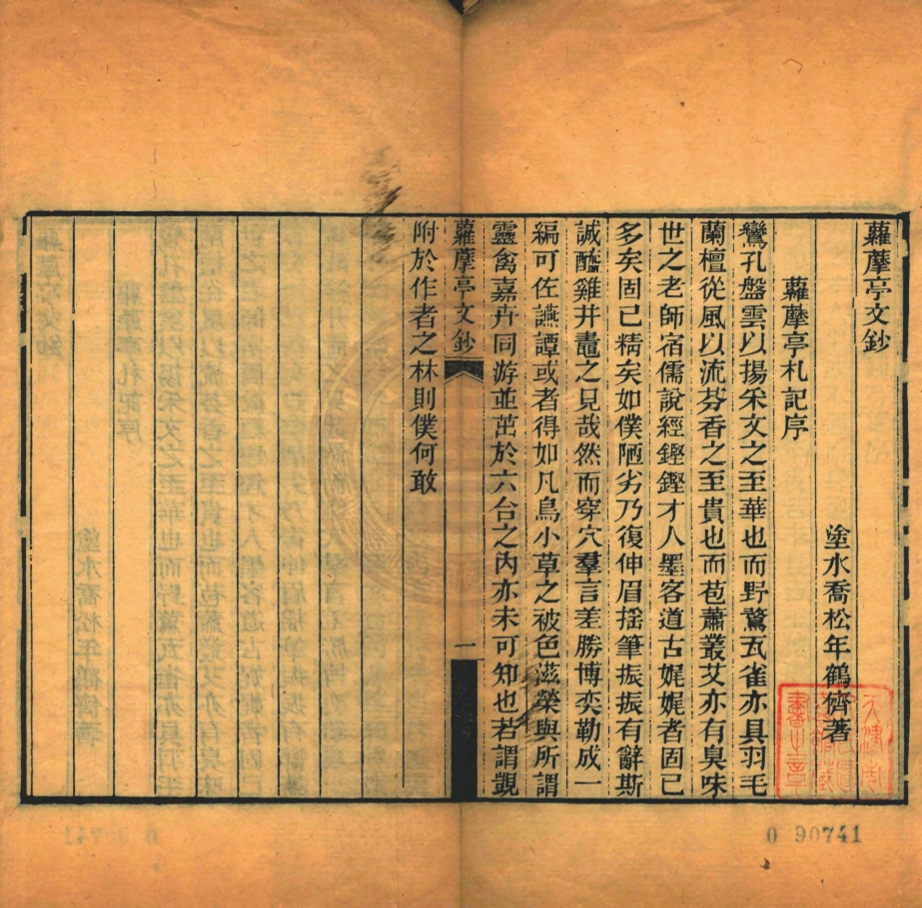 蘿藦亭文鈔
塗水喬松年鶴儕著
蘿藦亭札記序
鸞孔盤雲以揚采文之至華也而野鶩瓦雀亦具羽毛
蘭檀從風以流芬香之至貴也而苞蕭叢艾亦有臭味
世之老師宿儒說經鏗鏗才人墨客道古娓娓者固已
多矣固已精矣如僕陋劣乃復伸眉搖筆振振有辭斯
誠醯雞井鼃之見哉然而穿穴羣言差勝博奕勒成一
編可佐讌譚或者得如凡鳥小草之被色滋榮與所謂
靈禽嘉卉同游並茁於六合之內亦未可知也若謂覬
蘿藦亭文鈔
一
附於作者之林則僕何敢
0 90741